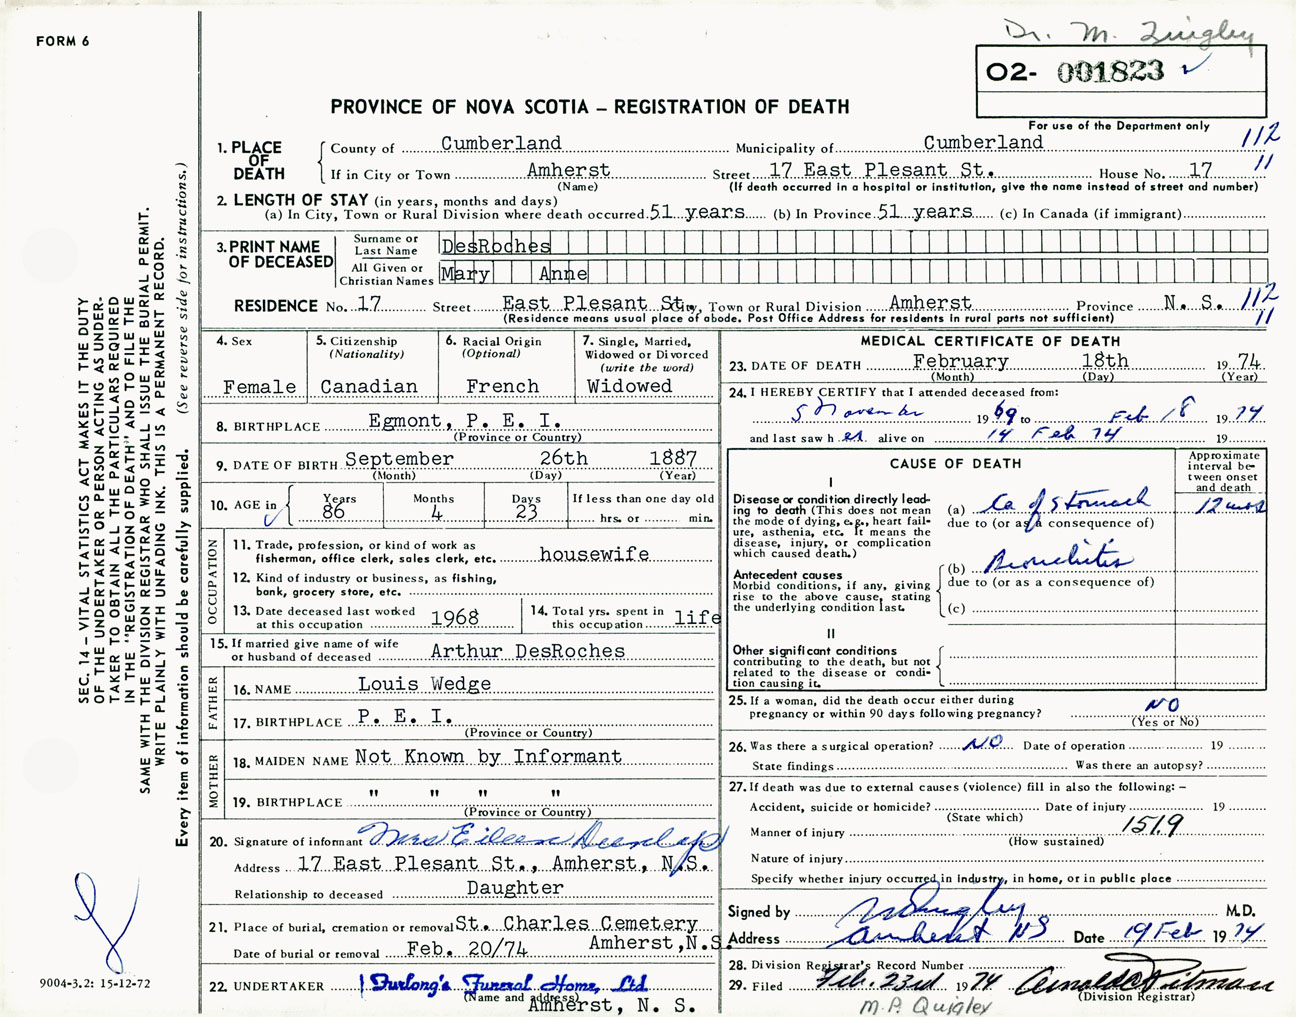 FORM 6
Dr. M. Quigley
O2- 001823
PROVINCE OF NOVA SCOTIA – REGISTRATION OF DEATH
For use of the Department only
1. PLACE OF DEATH
County of Cumberland Municipality of Cumberland 112
If in City or Town Amherst Street 17 East Plesant St. House No. 17 11
(Name) (If death occurred in a hospital or institution, give the name instead of street and number)
2. LENGTH OF STAY (in years, months and days)
(a) In City, Town or Rural Division where death occurred 51 years (b) In Province 51 years (c) In Canada (if immigrant)
3. PRINT NAME OF DECEASED
Surname or Last Name DesRoches
All Given or Christian Names Mary Anne
RESIDENCE No. 17 Street East Plesant St. City, Town or Rural Division Amherst Province N. S. 112
(Residence means usual place of abode. Post Office Address for residents in rural parts not sufficient) 11
4. Sex
Female
5. Citizenship
(Nationality)
Canadian
6. Racial Origin
(Optional)
French
7. Single, Married,
Widowed or Divorced
(write the word)
Widowed
8. BIRTHPLACE Egmont, P. E. I.
(Province or Country)
9. DATE OF BIRTH September 26th 1887
(Month) (Day) (Year)
10. AGE in
Years Months Days If less than one day old
86 4 23 hrs. or min.
OCCUPATION
11. Trade, profession, or kind of work as
fisherman, office clerk, sales clerk, etc. housewife
12. Kind of industry or business, as fishing,
bank, grocery store, etc.
13. Date deceased last worked
at this occupation 1968
14. Total yrs. spent in
this occupation life
15. If married give name of wife
or husband of deceased Arthur DesRoches
FATHER
16. NAME Louis Wedge
17. BIRTHPLACE P. E. I.
(Province or Country)
MOTHER
18. MAIDEN NAME Not Known by Informant
19. BIRTHPLACE " " " "
(Province or Country)
20. Signature of informant Mrs Eileen Dunlap
Address 17 East Plesant St., Amherst, N.S.
Relationship to deceased Daughter
21. Place of burial, cremation or removal St. Charles Cemetery
Date of burial or removal Feb. 20/74 Amherst, N.S.
22. UNDERTAKER Furlong's Funeral Home, Ltd
(Name and address)
Amherst, N. S.
MEDICAL CERTIFICATE OF DEATH
23. DATE OF DEATH February 18th 19 74
(Month) (Day) (Year)
24. I HEREBY CERTIFY that I attended deceased from:
5 November 19 69 to Feb 18 19 74
and last saw h er alive on 14 Feb 74 19
CAUSE OF DEATH
Approximate
interval be-
tween onset
and death
I
Disease or condition directly lead-
ing to death (This does not mean
the mode of dying, e.g., heart fail-
ure, asthenia, etc. It means the
disease, injury, or complication
which caused death.)
(a) Ca of Stomach 12 mos
due to (or as a consequence of)
Antecedent causes
Morbid conditions, if any, giving
rise to the above cause, stating
the underlying condition last.
(b) Bronchitis
due to (or as a consequence of)
(c)
II
Other significant conditions
contributing to the death, but not
related to the disease or condi-
tion causing it.
25. If a woman, did the death occur either during
pregnancy or within 90 days following pregnancy? NO
(Yes or No)
26. Was there a surgical operation? NO Date of operation 19
State findings Was there an autopsy?
27. If death was due to external causes (violence) fill in also the following: –
Accident, suicide or homicide? Date of injury 19
(State which)
Manner of injury 151.9
(How sustained)
Nature of injury
Specify whether injury occurred in industry, in home, or in public place
Signed by M Quigley M.D.
Address Amherst NS Date 19 Feb 19 74
28. Division Registrar's Record Number
29. Filed Feb. 23rd 19 74 Arnold C Pitman
(Division Registrar)
M.P. Quigley
SEC. 14 – VITAL STATISTICS ACT MAKES IT THE DUTY
OF THE UNDERTAKER OR PERSON ACTING AS UNDER-
TAKER TO OBTAIN ALL THE PARTICULARS REQUIRED
IN THE "REGISTRATION OF DEATH" AND TO FILE THE
SAME WITH THE DIVISION REGISTRAR WHO SHALL ISSUE THE BURIAL PERMIT.
WRITE PLAINLY WITH UNFADING INK. THIS IS A PERMANENT RECORD.
Every item of information should be carefully supplied. (See reverse side for instructions.)
9004-3.2: 15-12-72